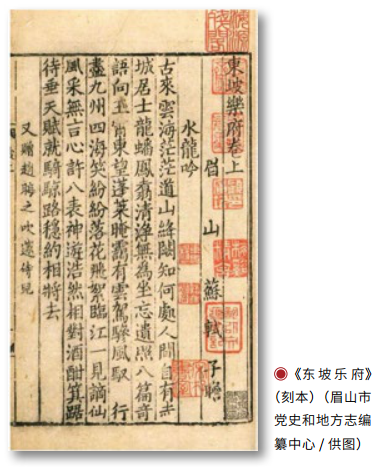 東坡樂府卷上
眉山 蘇軾 子瞻
水龍吟
古來雲海茫茫道山絳闕知何處人間自有赤
城居士龍蟠鳳翥清淨無為坐忘遺照八篇奇
語向玉霄東望蓬萊晻靄有雲駕驂風馭 行
盡九州四海笑紛紛落花飛絮臨江一見謫仙
風采無言心許八表神遊浩然相對酒酣箕踞
待垂天賦就騎鯨路穩約相將去
又贈趙晦之吹笛侍兒
《东坡乐府》
（刻本）（眉山市
党史和地方志编
纂中心 / 供图）